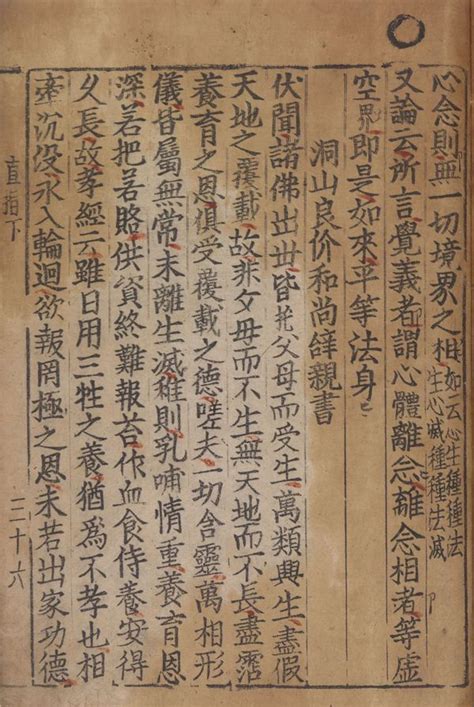 心念則無一切境界之相
如云心生種種法
生心滅種種法滅
又論云所言覺義者謂心體離念離念相者等虛
空界即是如來平等法身
洞山良价和尚辞親書
伏聞諸佛出世皆托父母而受生萬類興生盡假
天地之覆載故非父母而不生無天地而不長盡霑
養育之恩俱受覆載之德嗟夫一切含靈萬相形
儀皆屬無常未離生滅稚則乳哺情重養育恩
深若把若賂供資終難報荅作血食侍養安得
久長故孝經云雖日用三牲之養猶爲不孝也相
牽沉没永入輪迴欲報罔極之恩未若出家功德
直指下
三十六